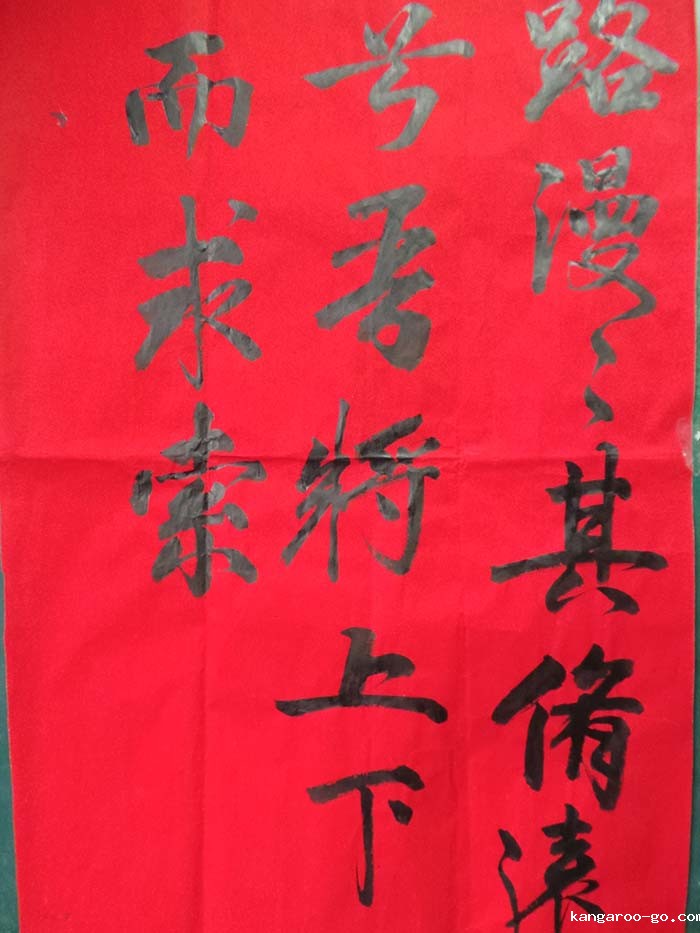 路漫〻其脩遠
兮吾將上下
而求索
kangaroo-go.com